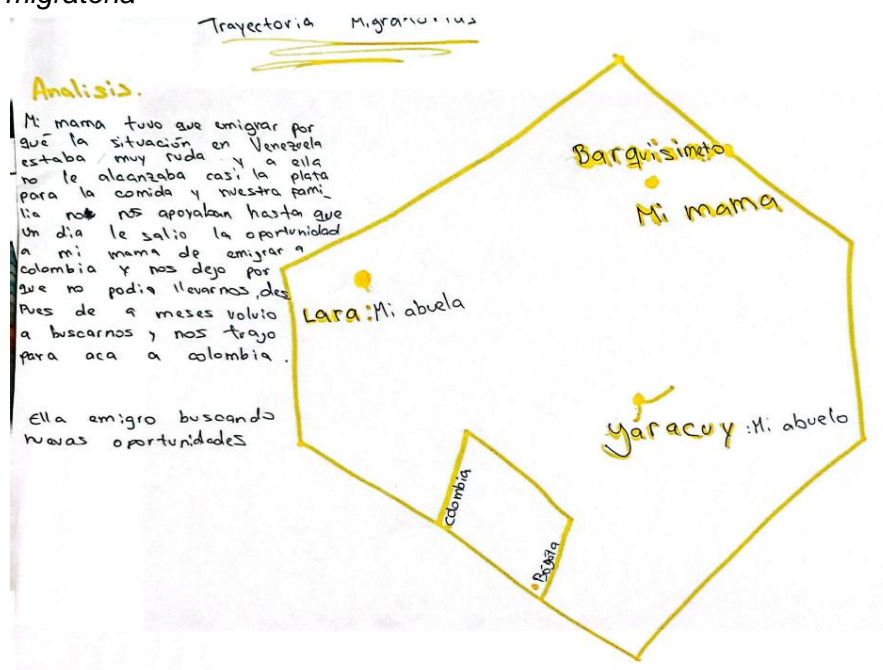 migratoria
Trayectoria
Analisis.
Mi mama tuvo que emigrar por
qué la situación en Venezuela
estaba muy ruda y a ella
no le alcanzaba casi la plata
para la comida y nuestra fami_
lia no nos apoyaban hasta que
un dia le salio la oportunidad
a mi mama de emigrar a
colombia y nos dejo por
que no podia llevarnos, des
pues de 9 meses volvio
a buscarnos y nos trajo
para aca a colombia.
Ella emigro buscando
nuevas oportunidades
Barquisimeto
Mi mama
Lara: Mi abuela
Yaracuy: Mi abuelo
Colombia
Bógota